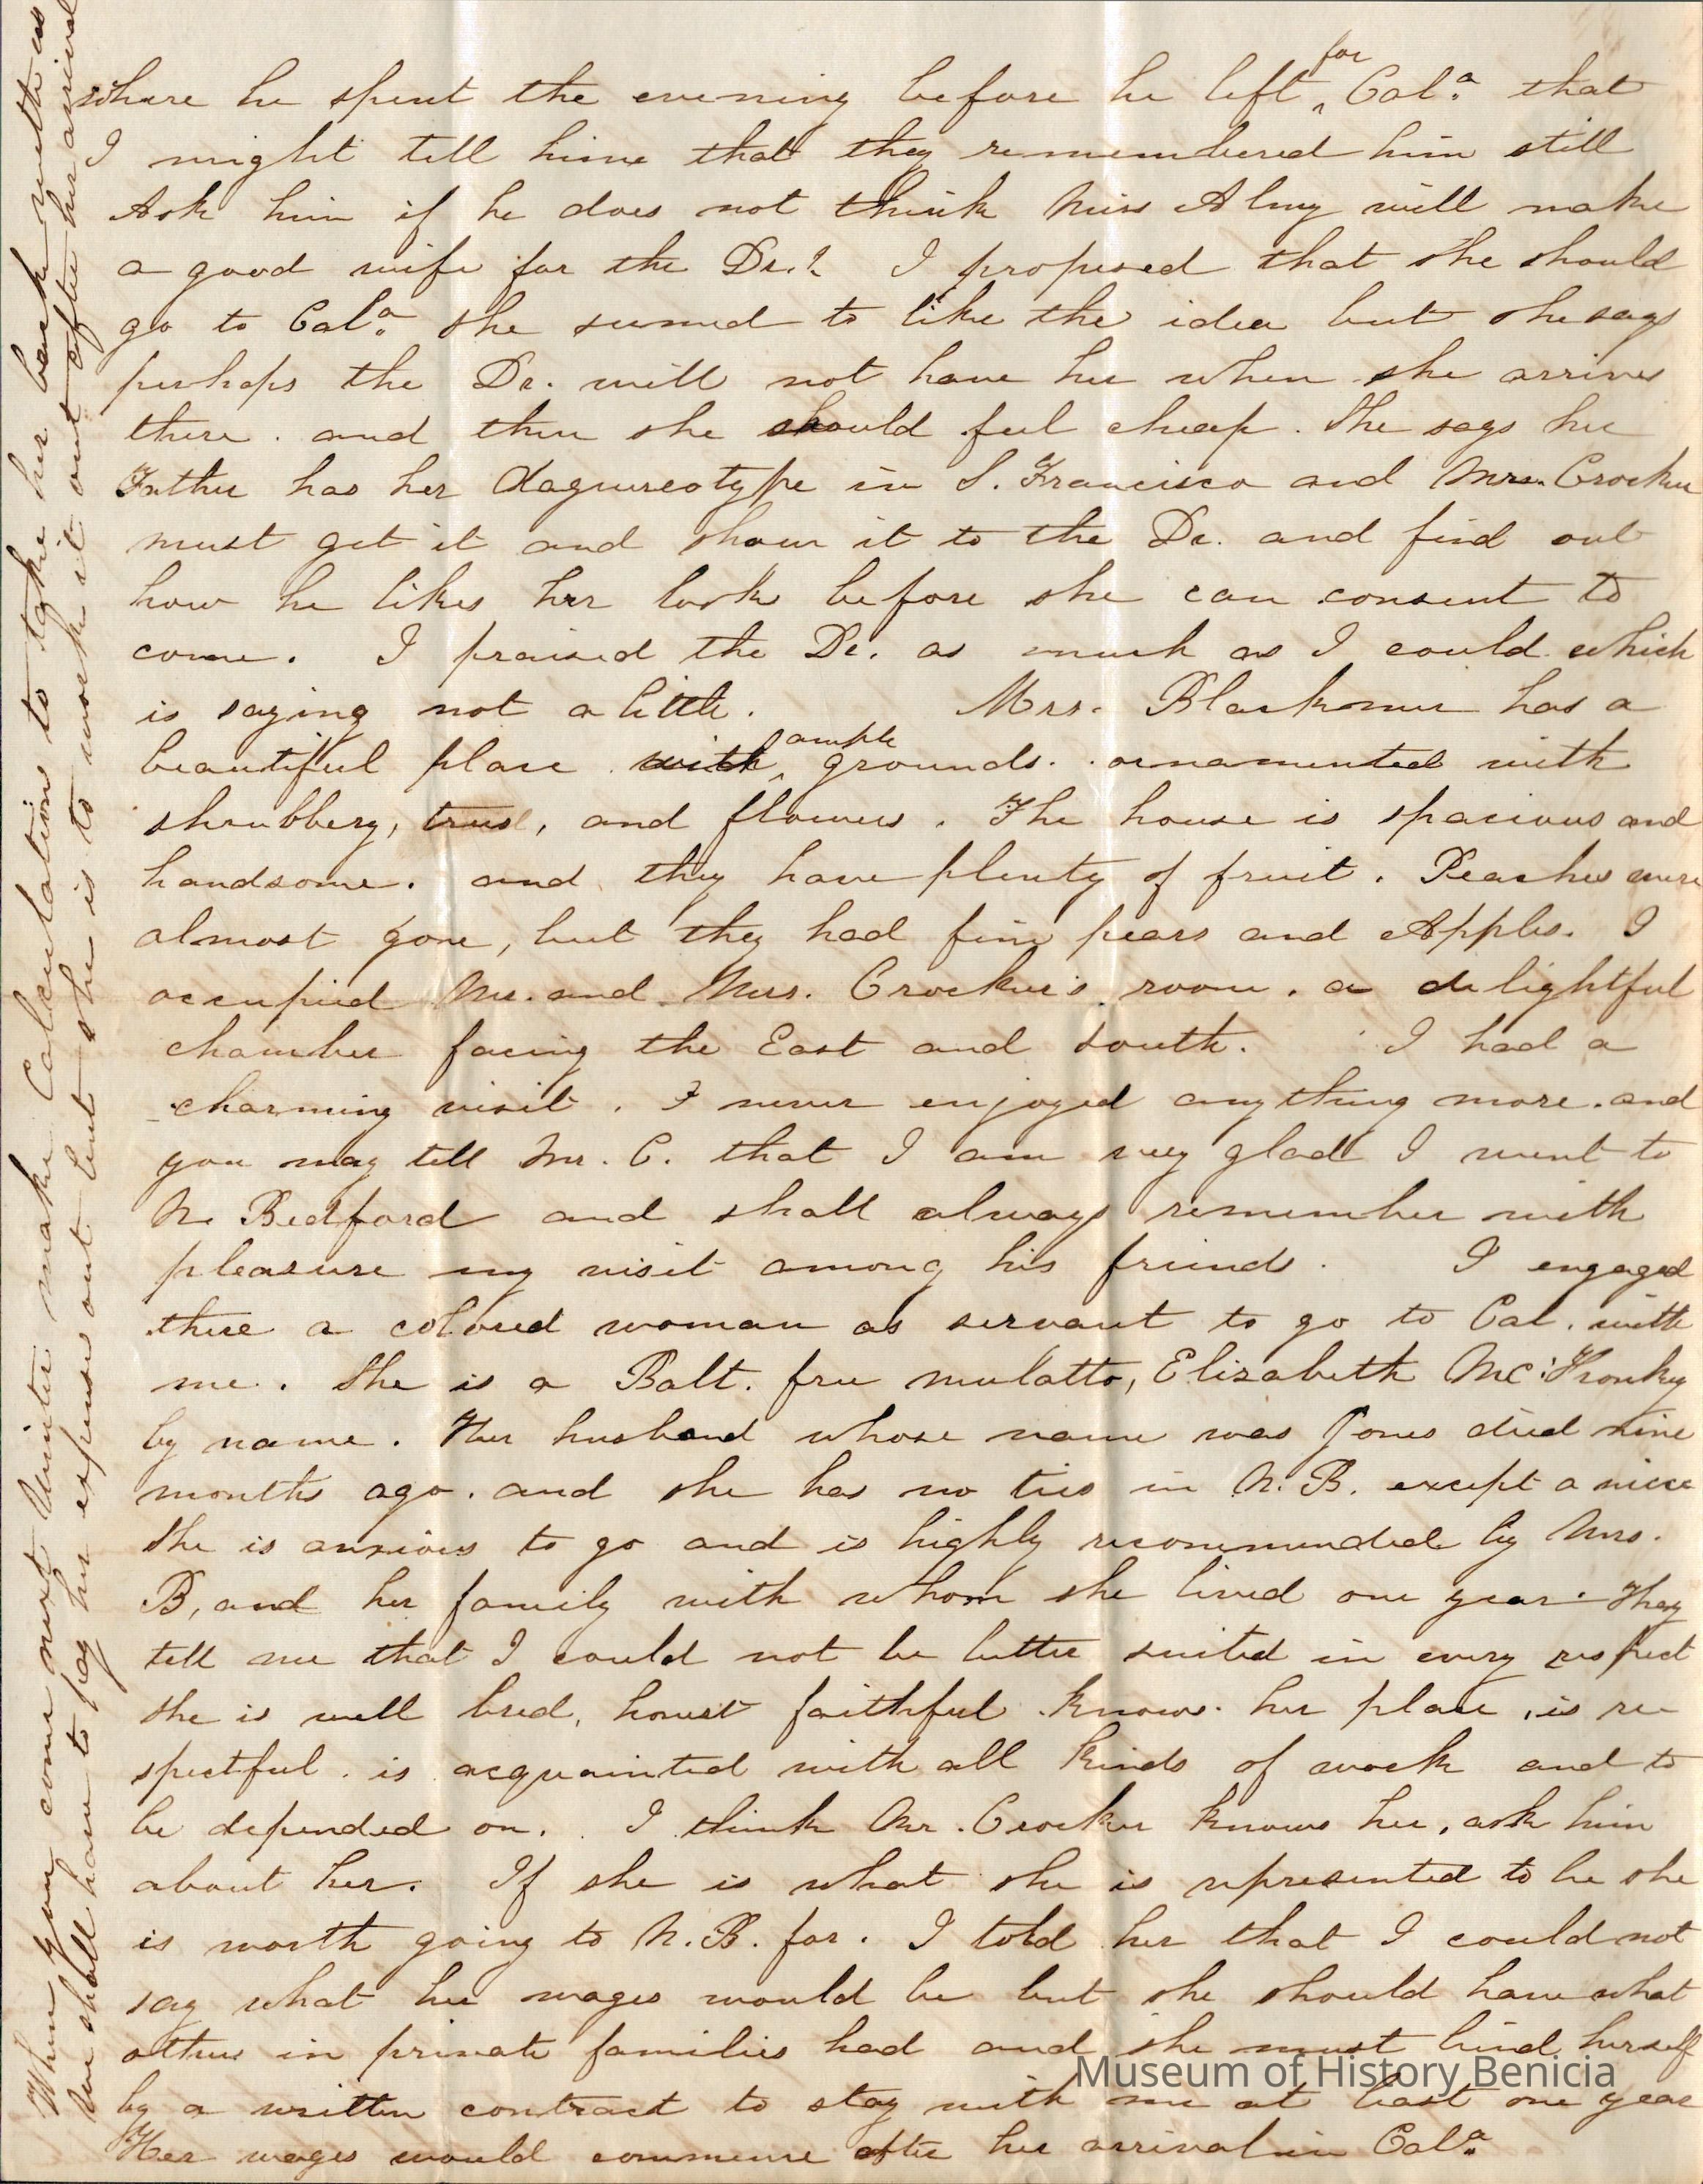 where he spent the evening before he left for Cal.a that
I might tell him that they remembered him still
Ask him if he does not think Miss Almy will make
a good wife for the Dr.? I proposed that she should
go to Cal.a she seemed to like the idea but she says
perhaps the Dr. will not have her when she arrives
there. and then she should feel cheap. She says her
Father has her daguereotype in S. Francisco and Mrs. Crocker
must get it and show it to the Dr. and find out
how he likes her looks before she can consent to
come. I praised the Dr. as much as I could which
is saying not a little. Mrs. Blackmer has a
beautiful place with ample grounds. ornamented with
shrubbery, trees, and flowers. The house is spacious and
handsome. and they have plenty of fruit. Peaches were
almost gone, but they had fine pears and Apples. I
occupied Mr. and Mrs. Crocker's room. a delightful
chamber facing the East and South. I had a
charming visit. I never enjoyed any thing more. and
you may tell Mr. C. that I am very glad I went to
N. Bedford and shall always remember with
pleasure my visit among his friends. I engaged
there a colored woman as servant to go to Cal. with
me. She is a Balt. free mulatto, Elizabeth
by name. Her husband whose name was Jones died nine
months ago. and she has no ties in N.B. except a niece
She is anxious to go and is highly recommended by Mrs.
B, and her family with whom she lived one year. They
tell me that I could not be better suited in every respect
She is well bred, honest faithful knows her place, is re-
spectful. is acquainted with all kinds of work and to
be depended on. I think Mr. Crocker knows her, ask him
about her. If she is what she is represented to be she
is worth going to N.B. for. I told her that I could not
say what her wages would be but she should have what
others in private families had and she must bind herself
by a written contract to stay with me at least one year
Her wages would commence after her arrival in Cal.a
When you come next Winter make Calculations to take her back with us
We shall have to pay her expenses out but she is to work it out after her arrival
Museum of History Benicia